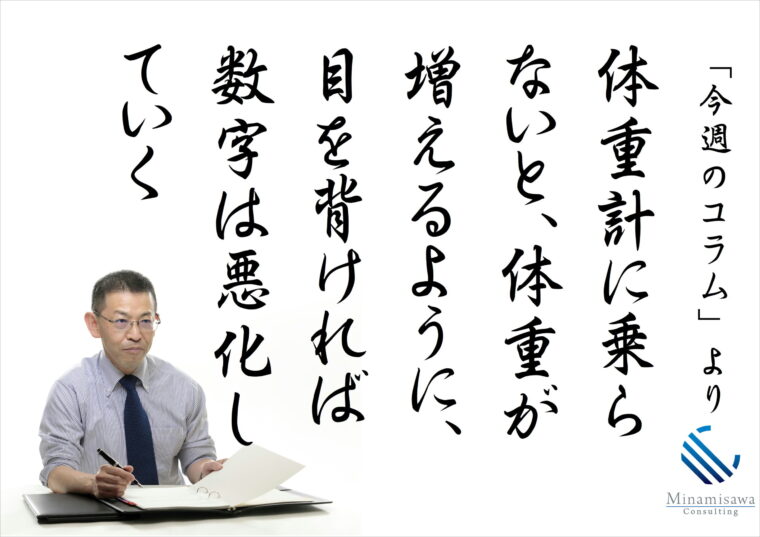 「今週のコラム」より
体重計に乗ら
ないと、体重が
増えるように、
目を背ければ
数字は悪化し
ていく
Minamisawa
Consulting